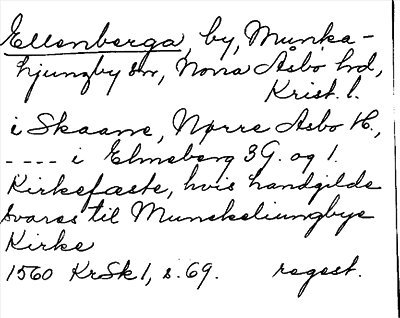 Ellenberga, by, Munka-
hjungby sn, Norra Åsbo hd,
Krist. l.
i Skaane, Nørre Asbo H.,
---- i Elmeberg 3 G. og 1.
Kirkefæste, hvis landgilde
svares til Munckeliungbye
Kirke
1560 KrSk 1, s. 69. regest.